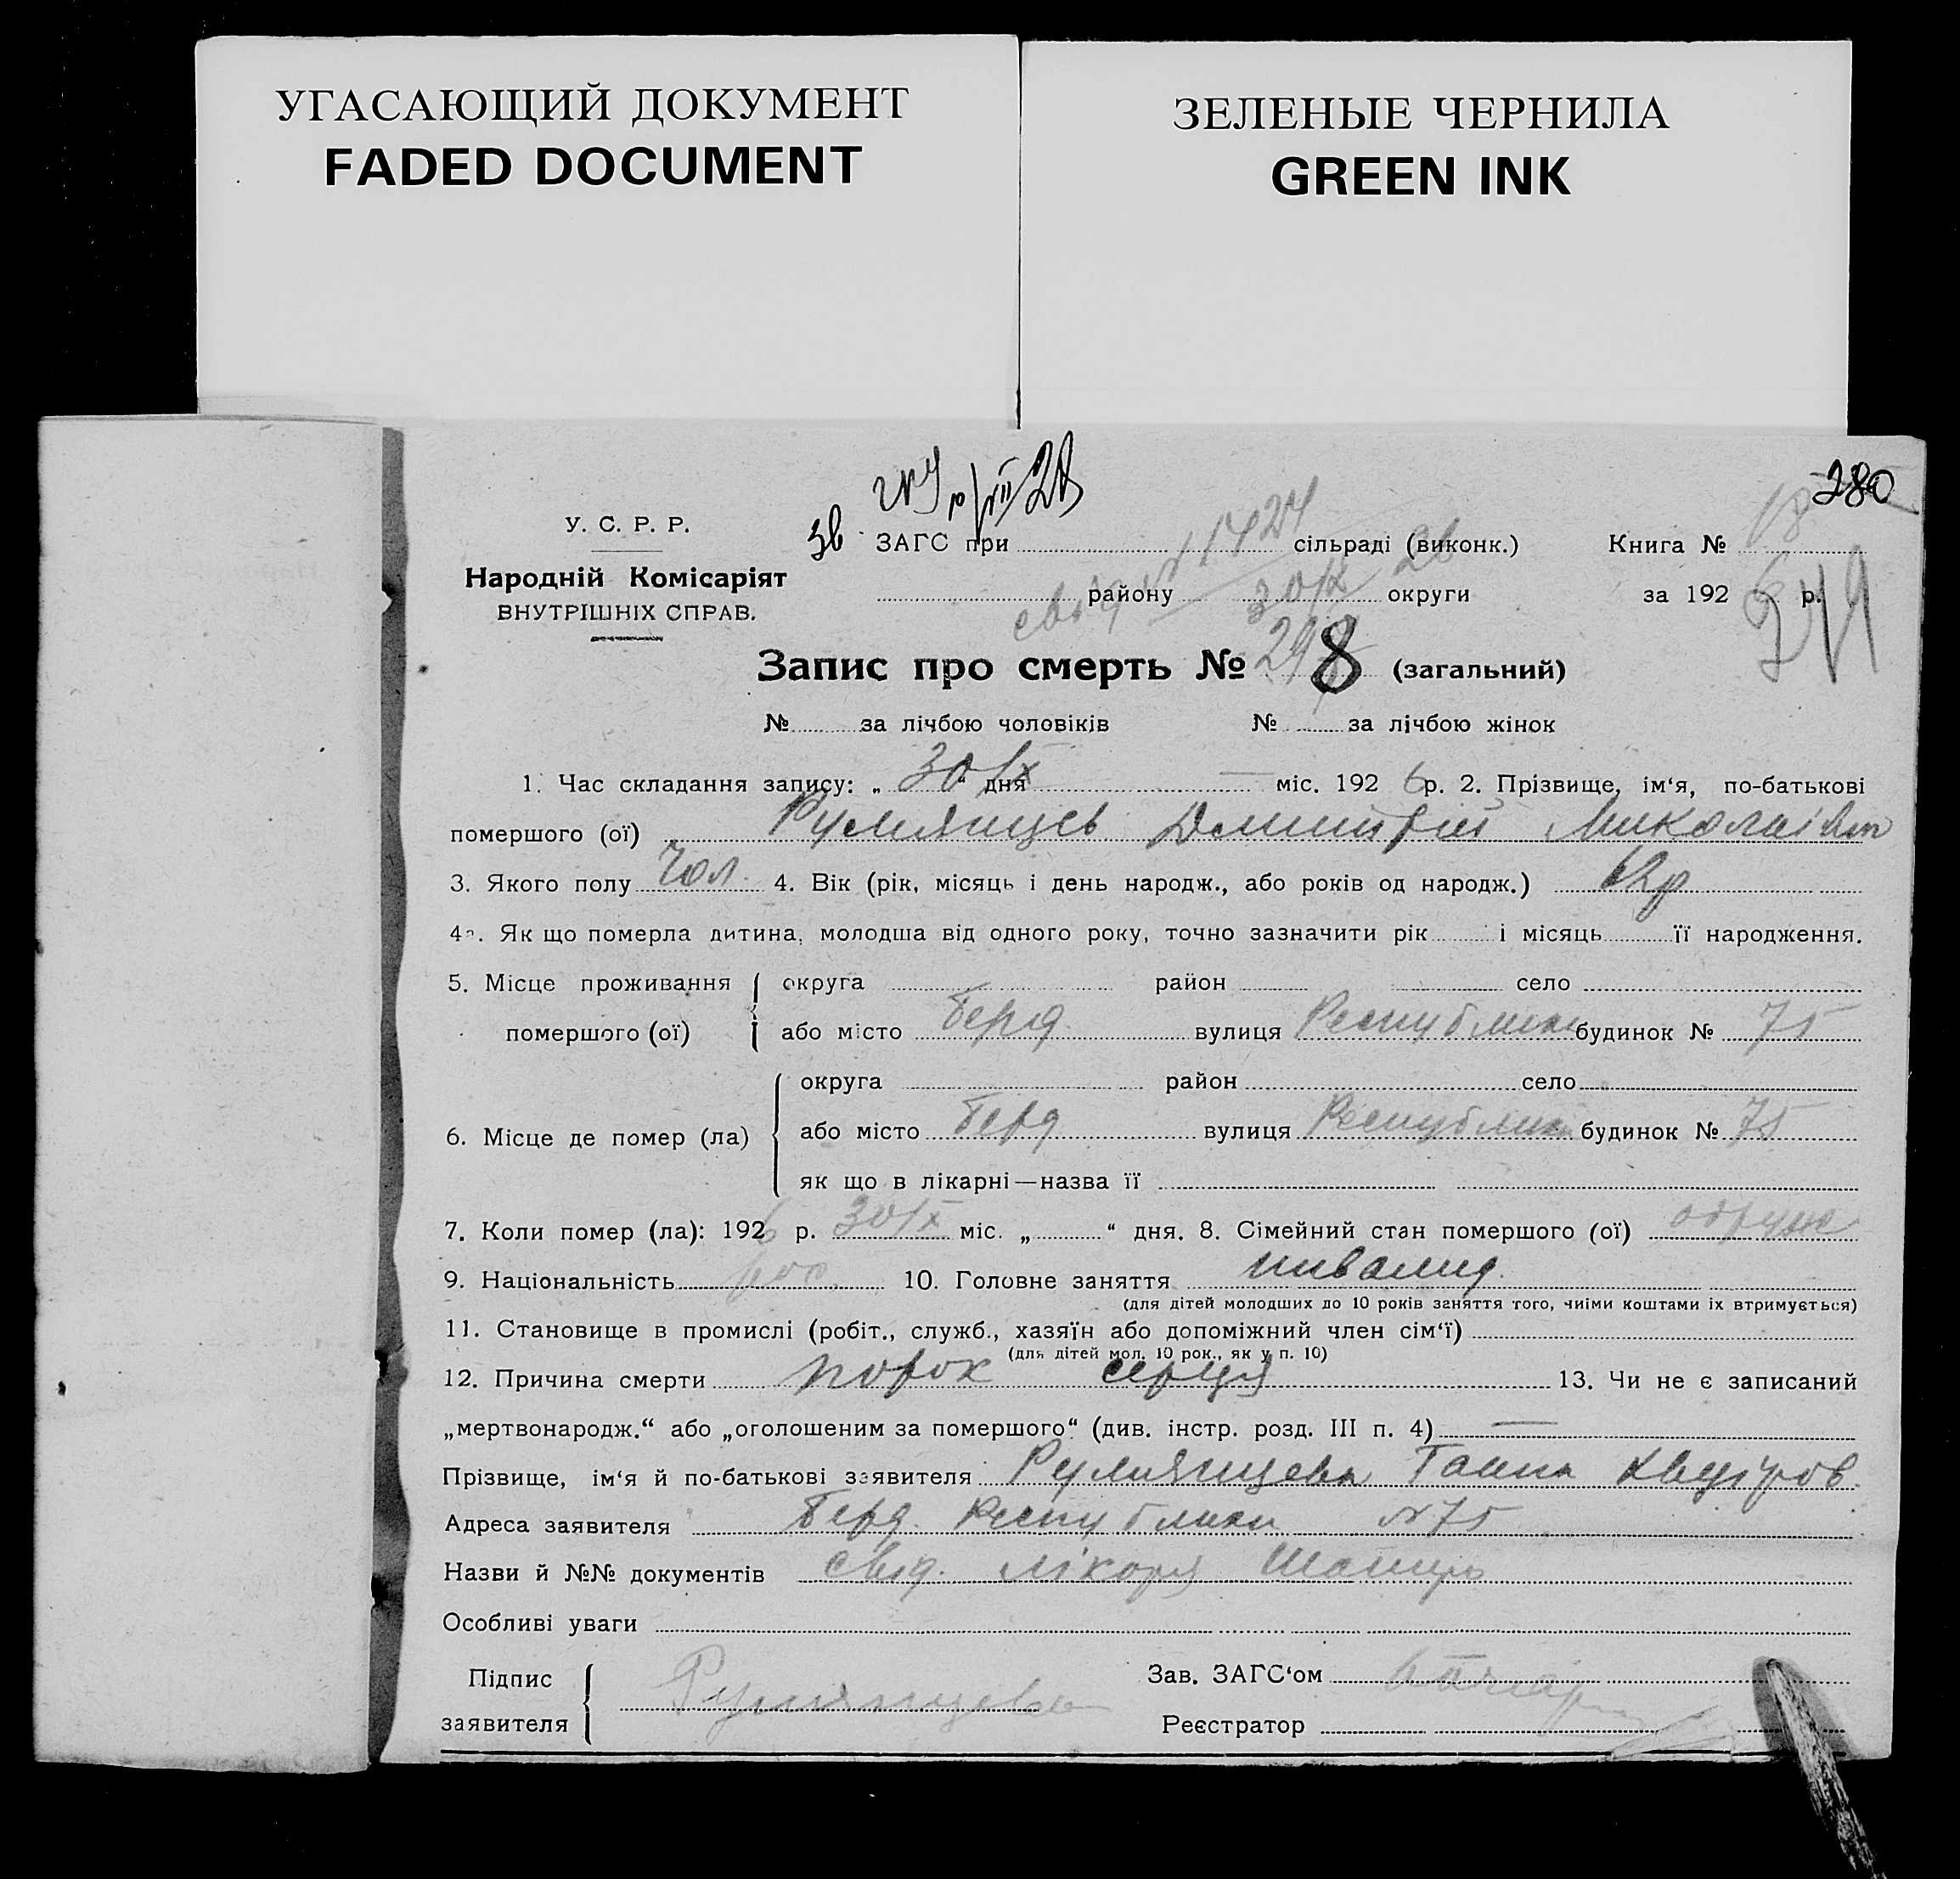 УГАСАЮЩИЙ ДОКУМЕНТ
FADED DOCUMENT
ЗЕЛЕНЫЕ ЧЕРНИЛА
GREEN INK
280
У. С. Р. Р.
Народній Комісаріят
ВНУТРІШНІХ СПРАВ.
ЗАГС при сільраді (виконк.)
району 30/IX 26 округи
Книга № 18
за 1926 р.
Запис про смерть № 8 (загальний)
№ за лічбою чоловіків № за лічбою жінок
1. Час складання запису: „ 30/IX “ дня — міс. 1926 р. 2. Прізвище, ім‘я, по-батькові
помершого (ої) Румянцев Дмитрій Миколаїв
3. Якого полу Чол. 4. Вік (рік, місяць і день народж., або років од народж.)
4а. Як що померла дитина, молодша від одного року, точно зазначити рік і місяць її народження.
5. Місце проживання помершого (ої) округа район село
або місто Берд. вулиця Республіки будинок № 75
6. Місце де помер (ла) округа район село
або місто Берд вулиця Республіки будинок № 75
як що в лікарні—назва її
7. Коли помер (ла): 1926 р. 30/IX міс. „ “ дня. 8. Сімейний стан помершого (ої) одруж
9. Національність рос. 10. Головне заняття инвалид.
(для дітей молодших до 10 років заняття того, чиїми коштами їх втримується)
11. Становище в промислі (робіт., служб., хазяїн або допоміжний член сім‘ї)
(для дітей мол. 10 рок., як у п. 10)
12. Причина смерти порок серця 13. Чи не є записаний
„мертвонародж.“ або „оголошеним за помершого“ (див. інстр. розд. III п. 4) —
Прізвище, ім‘я й по-батькові заявителя Румянцева Ганна
Адреса заявителя Берд. Республіки № 75
Назви й №№ документів свід. лікаря Шапиро
Особливі уваги
Підпис заявителя Румянцева
Зав. ЗАГС‘ом
Реєстратор